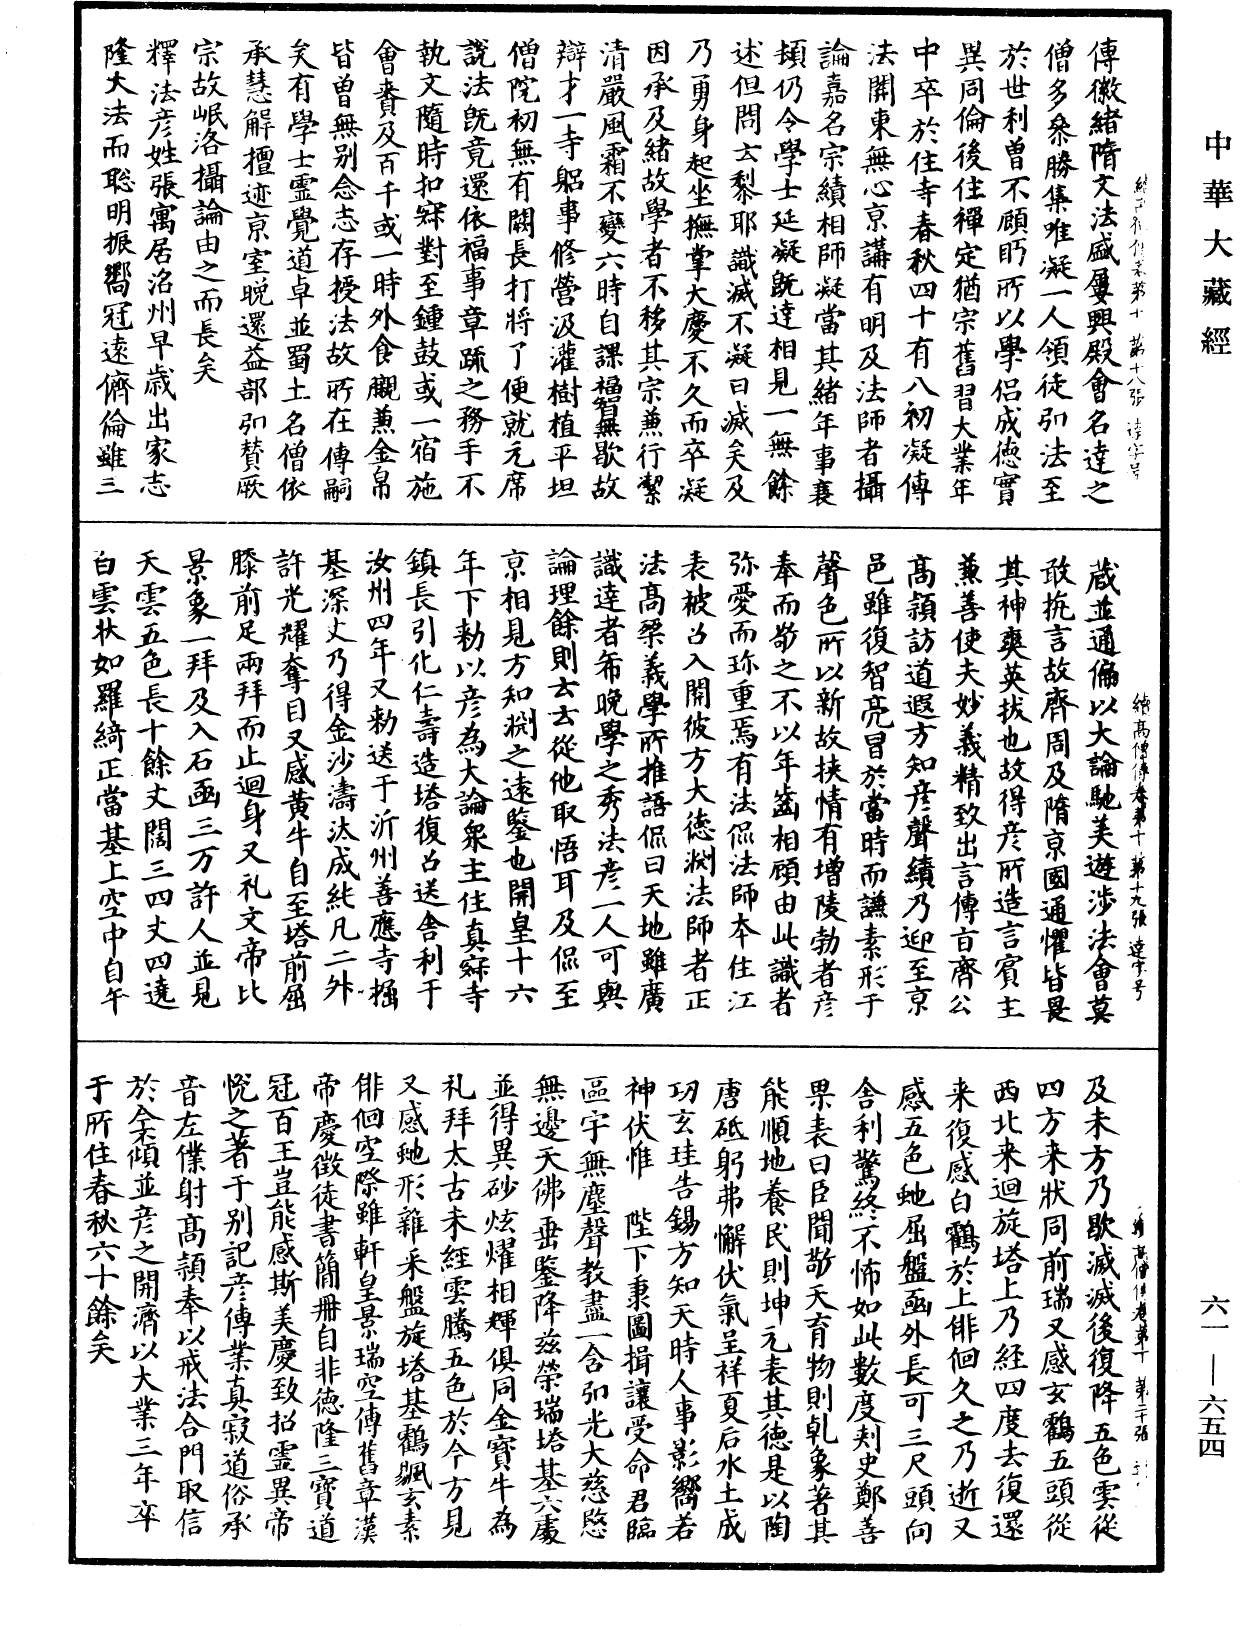 中華大藏經
傳徽緒隋文法盛屢興殿會名達之
僧多叅勝集唯凝一人領徒弘法至
於世利曽不顧眄所以學侣成徳實
異同倫後住禪定猶宗舊習大業年
中卒於住寺春秋四十有八初凝傳
法關東無心京講有明及法師者攝
論嘉名宗績相師凝當其緒年事襄
頓仍令學士延凝既達相見一無餘
述但問云黎耶識滅不凝曰滅矣及
乃勇身起坐撫掌大慶不久而卒凝
因承及緒故學者不移其宗兼行潔
清嚴風霜不變六時自課福智無歇故
辯才一寺躬事修營汲灌樹植平坦
僧院初無有闕長打將了便就元席
說法既竟還依福事章疏之務手不
執文隨時扣寐對至鍾鼓或一宿施
會賚及百千或一時外食䞋兼金帛
皆曽無别念志存授法故所在傳嗣
矣有學士靈覺道卓並蜀土名僧依
承慧解擅迹京室晚還益部弘賛厥
宗故岷洛攝論由之而長矣
釋法彦姓張寓居洛州早歳出家志
隆大法而聦明振嚮冠遠儕倫雖三
續高僧傳卷第十 第十九張 達字号
蔵並通偏以大論馳美遊渉法會莫
敢抗言故齊周及隋京國通懼皆畏
其神爽英拔也故得彦所造言賓主
兼善使夫妙義精致出言傳旨齊公
髙熲訪道遐方知彦聲績乃迎至京
邑雖復智亮冒於當時而謙素形于
聲色所以新故挾情有增陵勃者彦
奉而敬之不以年齒相顧由此識者
弥愛而珎重焉有法侃法師本住江
表被召入關彼方大徳渕法師者正
法髙梁義學所推語侃曰天地雖廣
識達者希晚學之秀法彦一人可與
論理餘則云云從他取悟耳及侃至
京相見方知渕之遠鑒也開皇十六
年下勑以彦為大論衆主住真寂寺
鎮長引化仁壽造塔復召送舎利于
汝州四年又勑送于沂州善應寺掘
基深丈乃得金沙濤汰成純凡二升
許光耀奪目又感黄牛自至塔前屈
膝前足兩拜而止迴身又礼文帝比
景象一拜及入石函三万許人並見
天雲五色長十餘丈闊三四丈四遶
白雲狀如羅綺正當基上空中自午
及未方乃歇滅滅後復降五色雲從
四方来狀同前瑞又感玄鶴五頭從
西北来迴旋塔上乃經四度去復還
来復感白鶴於上俳佪久之乃逝又
感五色虵屈盤函外長可三尺頭向
舎利驚終不怖如此數度刾史鄭善
果表曰臣聞敬天育物則乹象著其
能順地養民則坤元表其徳是以陶
唐砥躬弗懈伏氣呈祥夏后水土成
功玄珪告錫方知天時人事影嚮若
神伏惟 陛下秉圖揖讓受命君臨
區宇無塵聲教盡一含弘光大慈愍
無邊天佛垂鑒降兹榮瑞塔基六處
並得異砂炫燿相輝俱同金寶牛為
礼拜太古未經雲騰五色於今方見
又感虵形雜采盤旋塔基鶴飄玄素
俳佪空際雖軒皇景瑞空傳舊章漢
帝慶徵徒書簡冊自非徳隆三寶道
冠百王豈能感斯美慶致招靈異帝
恱之著于别記彦傳業真寂道俗承
音左僕射髙熲奉以戒法合門取信
於今傾並彦之開濟以大業三年卒
于所住春秋六十餘矣
六一—六五四